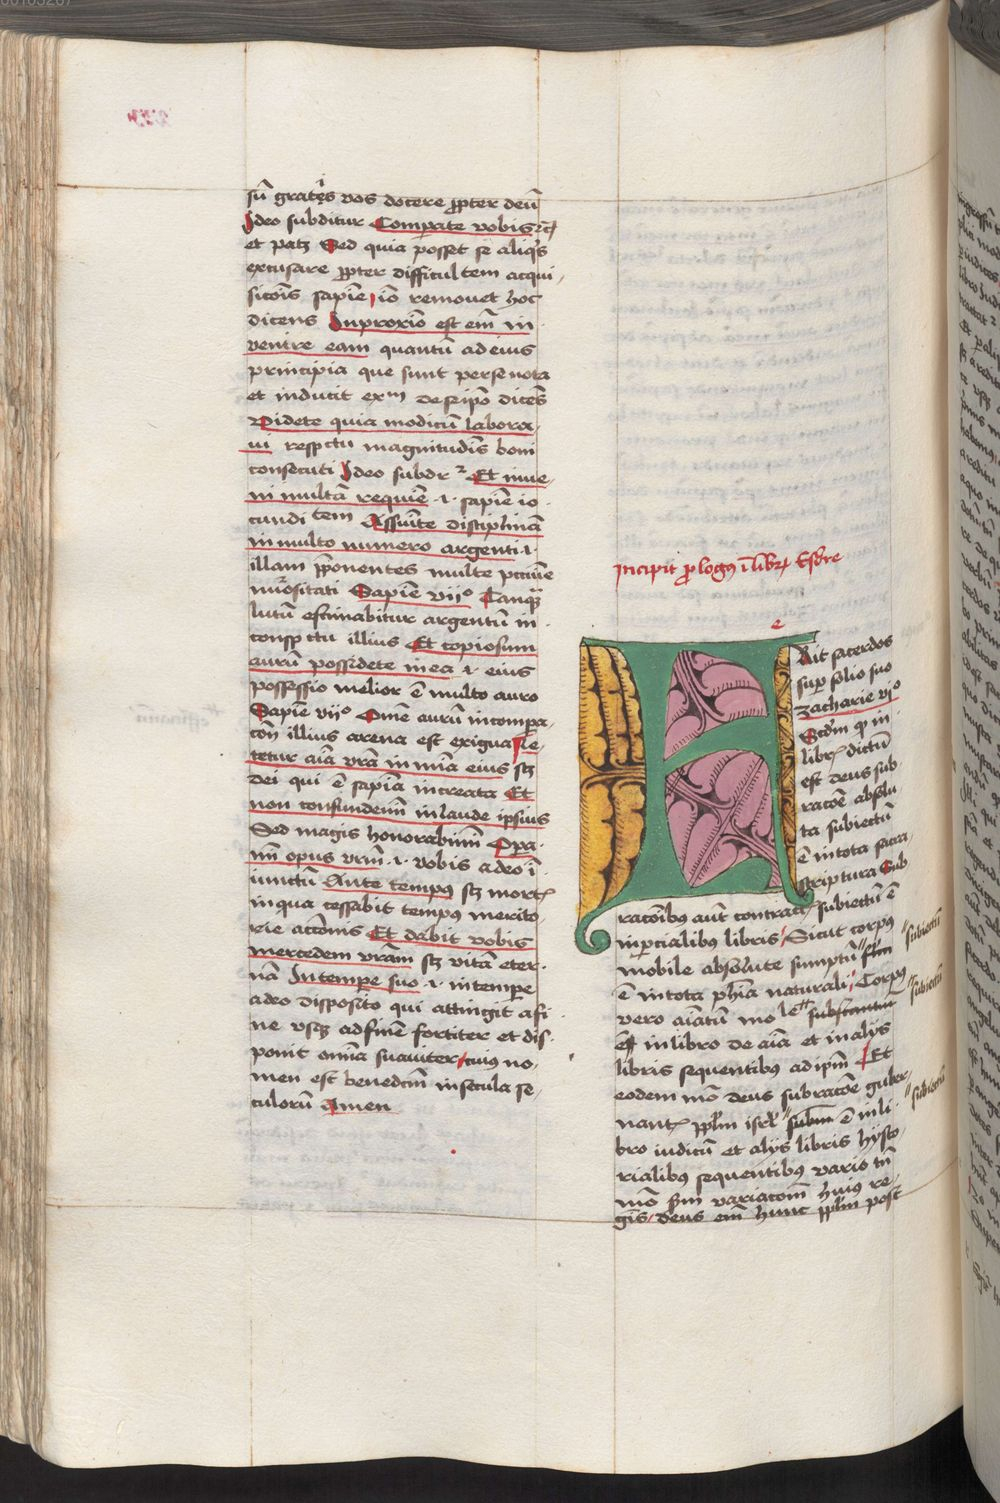 sū gratꝭs vos docere ꝓpter deū
Ideo subditur Comparate vobis ⁊cꝭ
et patꝫ Sed quia posset se aliqͥs
excusare ꝓpter difficultem acqui
sicōis sapiē, iō remouet hoc
dicens In proxīo est em̄ in
venire eam quantū ad eius
principia que sunt per se nota
et inducit exᵐ de seipō dicēs
Videte quia modicū labora
ui respctu magnitudīs boni
consecuti Ideo subdr̄ Et inue
ni multā requiē .i. sapiē io
cundi tem Assumite disciplinā
in multo numero argenti .i.
illam p̄ponentes multe pecunie
Sapiē vijº Tanqᷓ
lutū estimabitur argentū in
conspctu illius Et copiosum
aurū possidete in ea .i. eius
possessio melior ē multo auro
Sapiē vijº Om̄e aurū in compa
cōn illius arena est exigua Le
tetur aīa vr̄a in mīa eius sꝫ
dei qui ē sapīa increata Et
non confundemī in laude ipsius
Sed magis honorabimī Opa
mī opus vrm̄ .i. vobis a deo ī
iunctū Ante tempus sꝫ mortꝭ
in qua cessabit tempus merito
rie accōnis Et dabit vobis
mercedem vr̄am sꝫ vitā eter
nā In tempe suo .i. in tempe
a deo disposito qui attingit a fi
ne vsqꝫ ad finē fortiter et dis
ponit omīa suauiter, cuius no
men est benedcm̄ in secula se
culorū Amen
Incipit prologus ī libꝝ Esdre
e
Ait sacerdos
suꝑ solio suo
zacharie vjº
Scdm̄ qꝫ in
libꝝ dictū
est deus sub
racōe absolu
ta subiectū
ē in tota sacra
scriptura Sub
racōibus aut̄ contractꝭ subiectū ē
in ꝑcialibus libris, Sicut corpus
mobile absolute sumptū
subiectū
ē in tota phīa naturali, Corpus
subiectū
vero aīatū mo le substantia
est in libro de aīa et in alijs
libris sequentibus ad ipm̄ Et
eodem mō deus sub racōe guber
nantꝭ pplm̄ isrl̄ subm̄ ē in li
subiectū
bro iudicū et alijs libris hysto
rialibus sequentibus vario tn̄
mō scdm̄ variacom̄ huius re
gis, deus em̄ hunc pplm̄ post